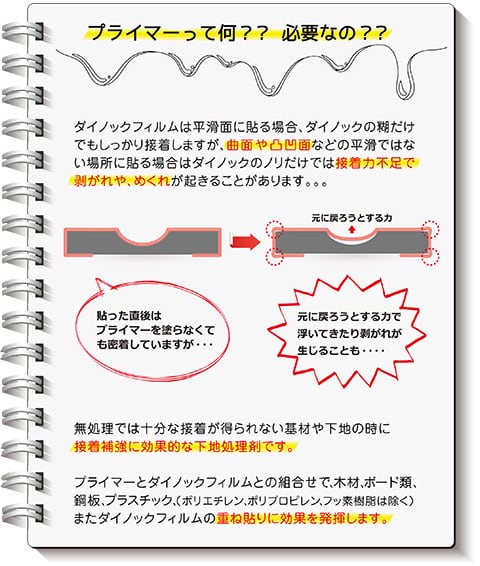 プライマーって何？？ 必要なの？？
ダイノックフィルムは平滑面に貼る場合、ダイノックの糊だけ
でもしっかり接着しますが、曲面や凸凹面などの平滑ではな
い場所に貼る場合はダイノックのノリだけでは接着力不足で
剥がれや、めくれが起きることがあります。。。
元に戻ろうとする力
貼った直後は
プライマーを塗らなくて
も密着していますが・・・
元に戻ろうとする力で
浮いてきたり剥がれが
生じることも・・・・
無処理では十分な接着が得られない基材や下地の時に
接着補強に効果的な下地処理剤です。
プライマーとダイノックフィルムとの組合せで、木材、ボード類、
鋼板、プラスチック、（ポリエチレン、ポリプロピレン、フッ素樹脂は除く）
またダイノックフィルムの重ね貼りに効果を発揮します。